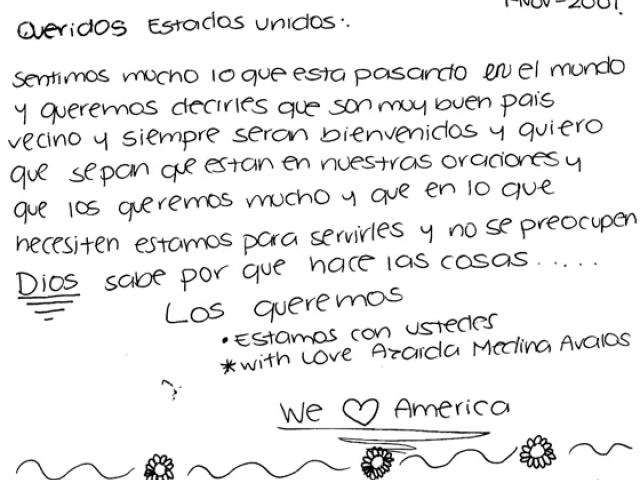 1-NOV-2001.
Queridos Estados unidos:.
sentimos mucho lo que esta pasando en el mundo
y queremos decirles que son muy buen pais
vecino y siempre seran bienvenidos y quiero
que sepan que estan en nuestras oraciones y
que los queremos mucho y que en lo que
necesiten estamos para servirles y no se preocupen
Dios sabe por que hace las cosas.....
Los queremos
• Estamos con ustedes
*with Love Azaida Medina Avalos
We ♡ America